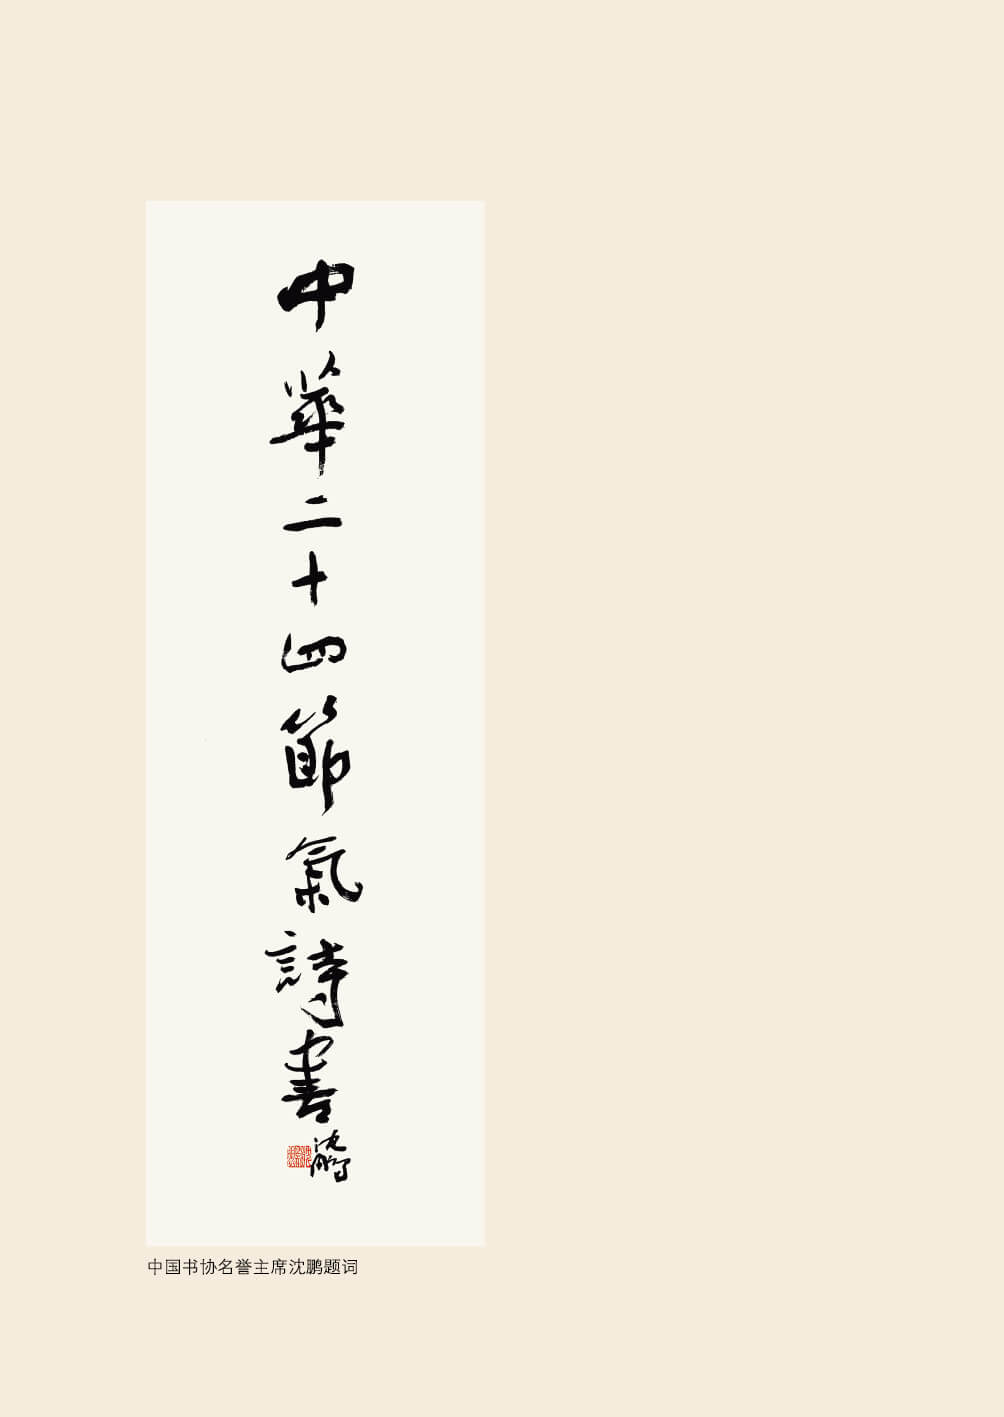 中華二十四節氣詩書
沈鵬
中国书协名誉主席沈鹏题词